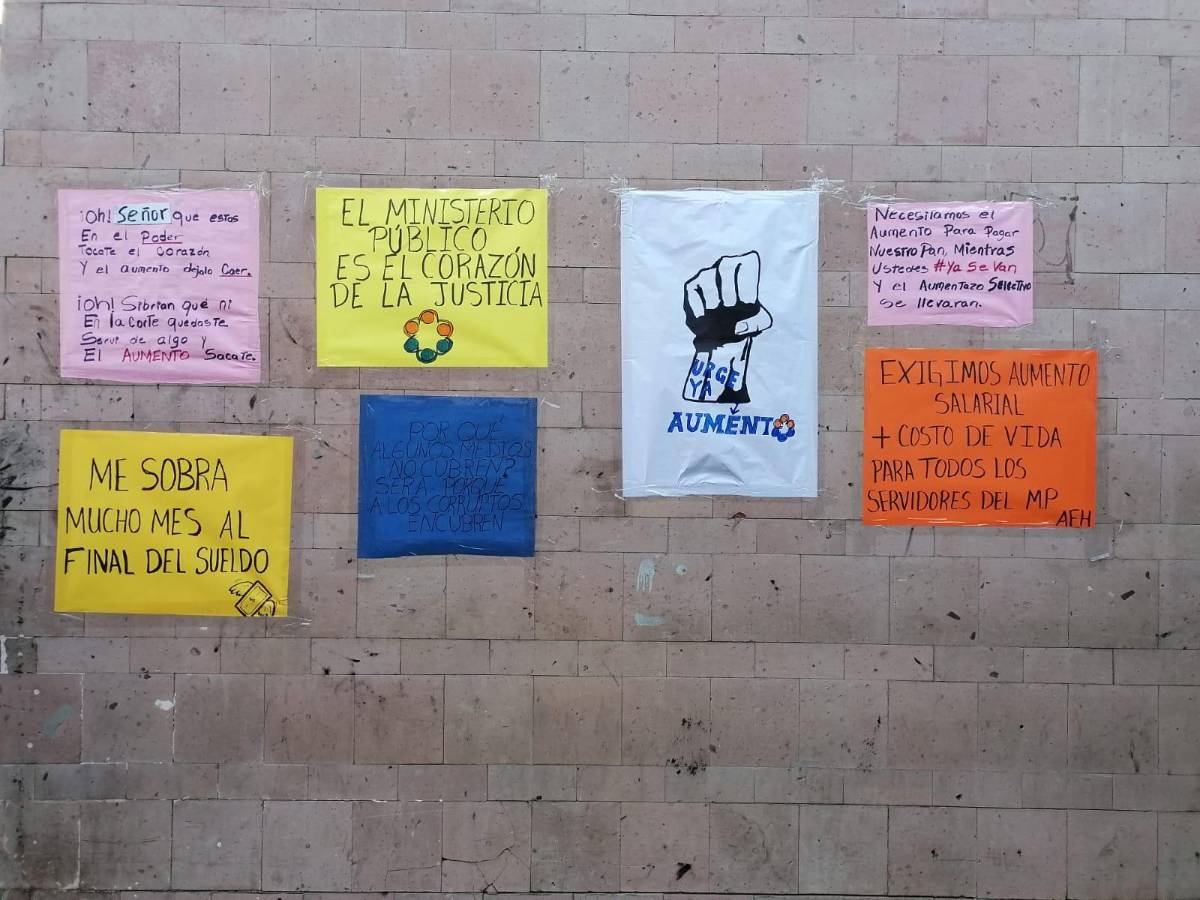 ¡Oh! Señor que estas
En el Poder
Tocate el Corazón
Y el aumento dejalo Caer.
¡Oh! Sibrian qué ni
En la Corte quedaste
Servi de algo y
El AUMENTO Sacate.
EL MINISTERIO
PÚBLICO
ES EL CORAZÓN
DE LA JUSTICIA
URGE
YA
AUMENTO
Necesitamos el
Aumento Para Pagar
Nuestro Pan, Mientras
Ustedes #Ya Se Van
Y el Aumentazo Selectivo
Se llevaran.
ME SOBRA
MUCHO MES AL
FINAL DEL SUELDO
POR QUÉ
ALGUNOS MEDIOS
NO CUBREN?
SERÁ PORQUE
A LOS CORRUPTOS
ENCUBREN
EXIGIMOS AUMENTO
SALARIAL
+ COSTO DE VIDA
PARA TODOS LOS
SERVIDORES DEL MP
AEH